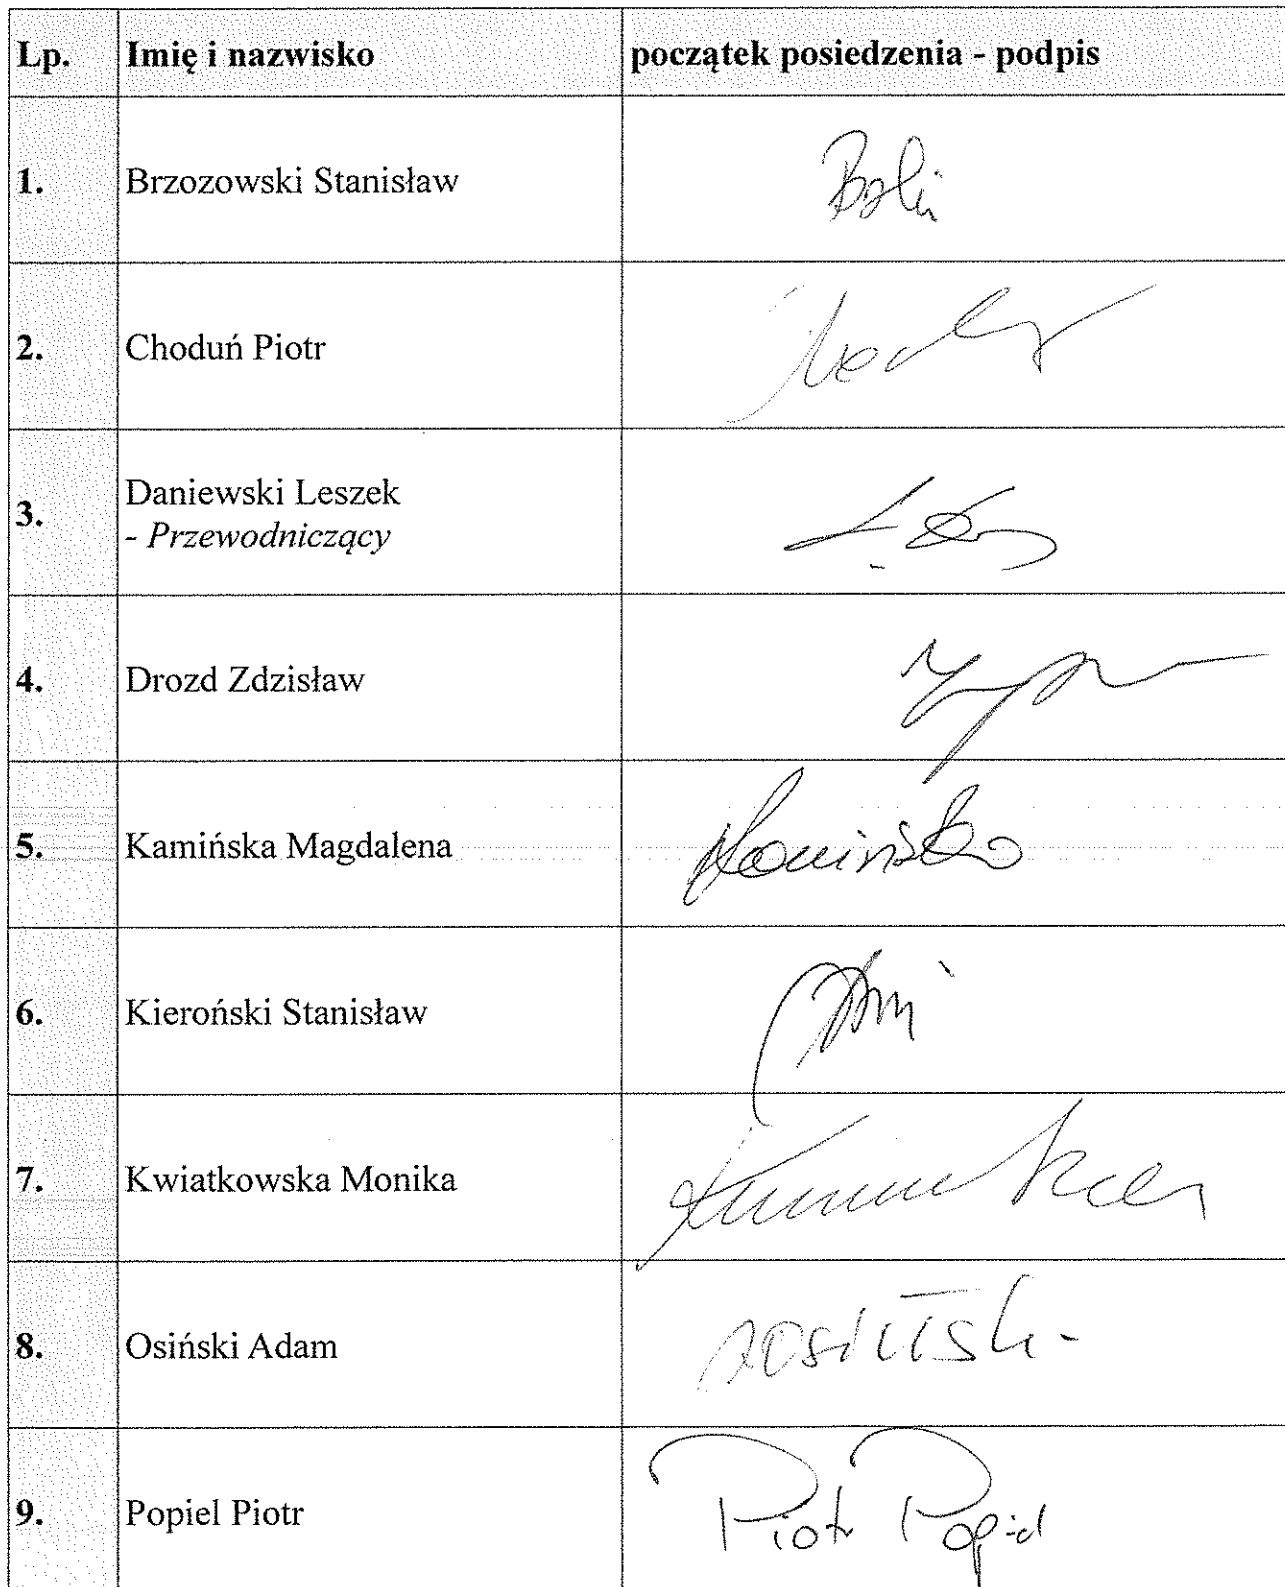 Lp. Imię i nazwisko początek posiedzenia - podpis
1. Brzozowski Stanisław
2. Choduń Piotr
3. Daniewski Leszek
- Przewodniczący
4. Drozd Zdzisław
5. Kamińska Magdalena Kamińska
6. Kieroński Stanisław
7. Kwiatkowska Monika
8. Osiński Adam
9. Popiel Piotr Piotr Popiel